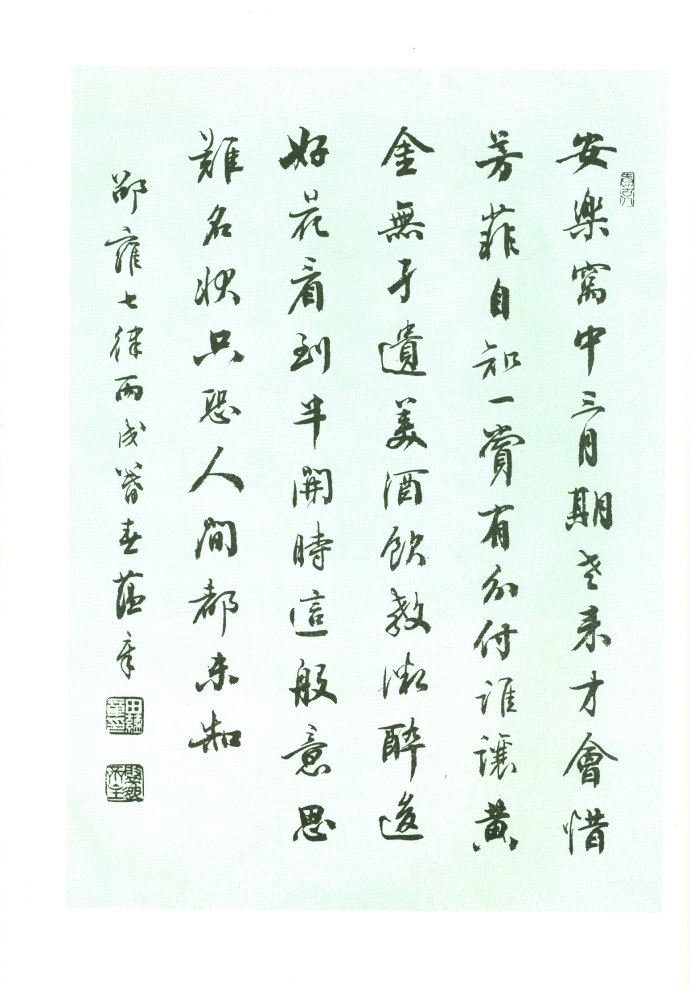 安樂窩中三月期老来才會惜
芳菲自知一賞有分付誰讓黄
金無孑遺美酒飲教微醉後
好花看到半開時這般意思
難名状只恐人間都未知
邵雍七律丙戌暮春蘊章
田蘊章印